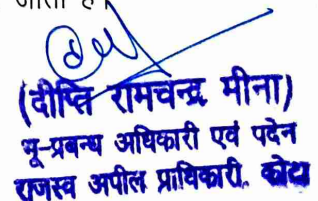 जाता है।
(दीप्ति रामचन्द्र मीना)
भू-प्रबन्ध अधिकारी एवं पदेन
राजस्व अपील प्राधिकारी, कोटा